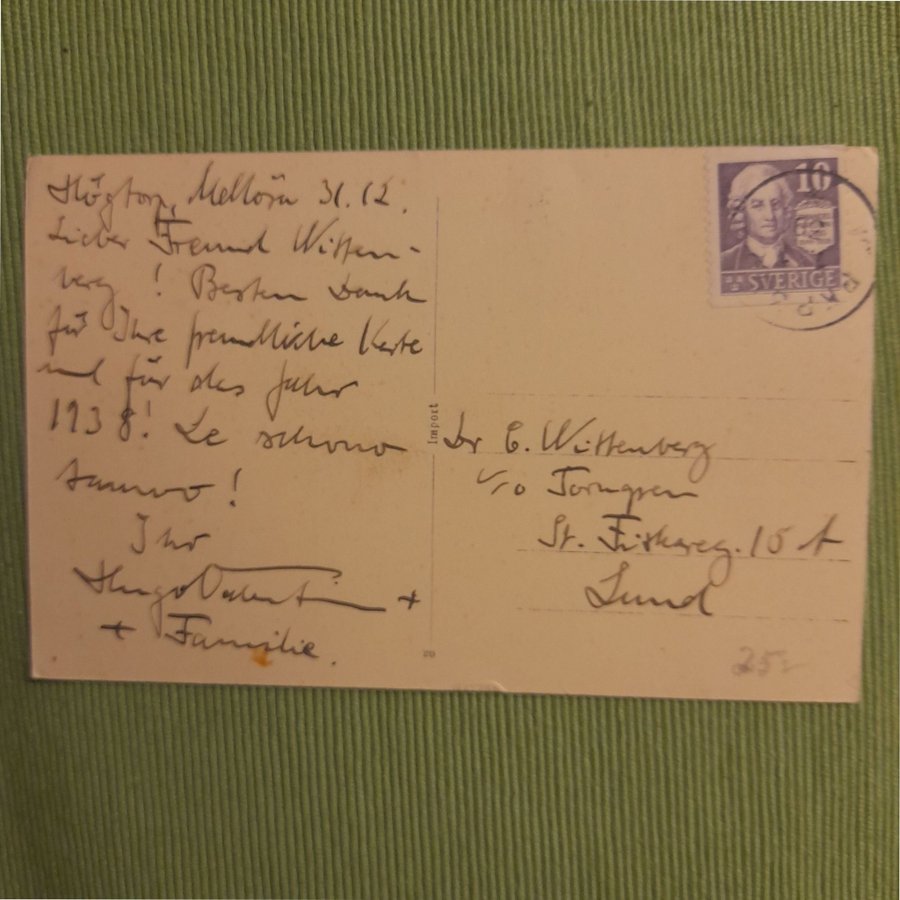 Högtorp, Mellösa 31.12.
Lieber Freund Witten-
berg! Besten Dank
für Ihre freundliche Karte
und für das Jahr
1938! Le schono
tauwo!
Ihr
Hugo Valentin +
+ Familie.
10
SVERIGE
Import
Dr E. Wittenberg
c/o Torngren
St. Fiskareg. 15 A
Lund
20
25:-